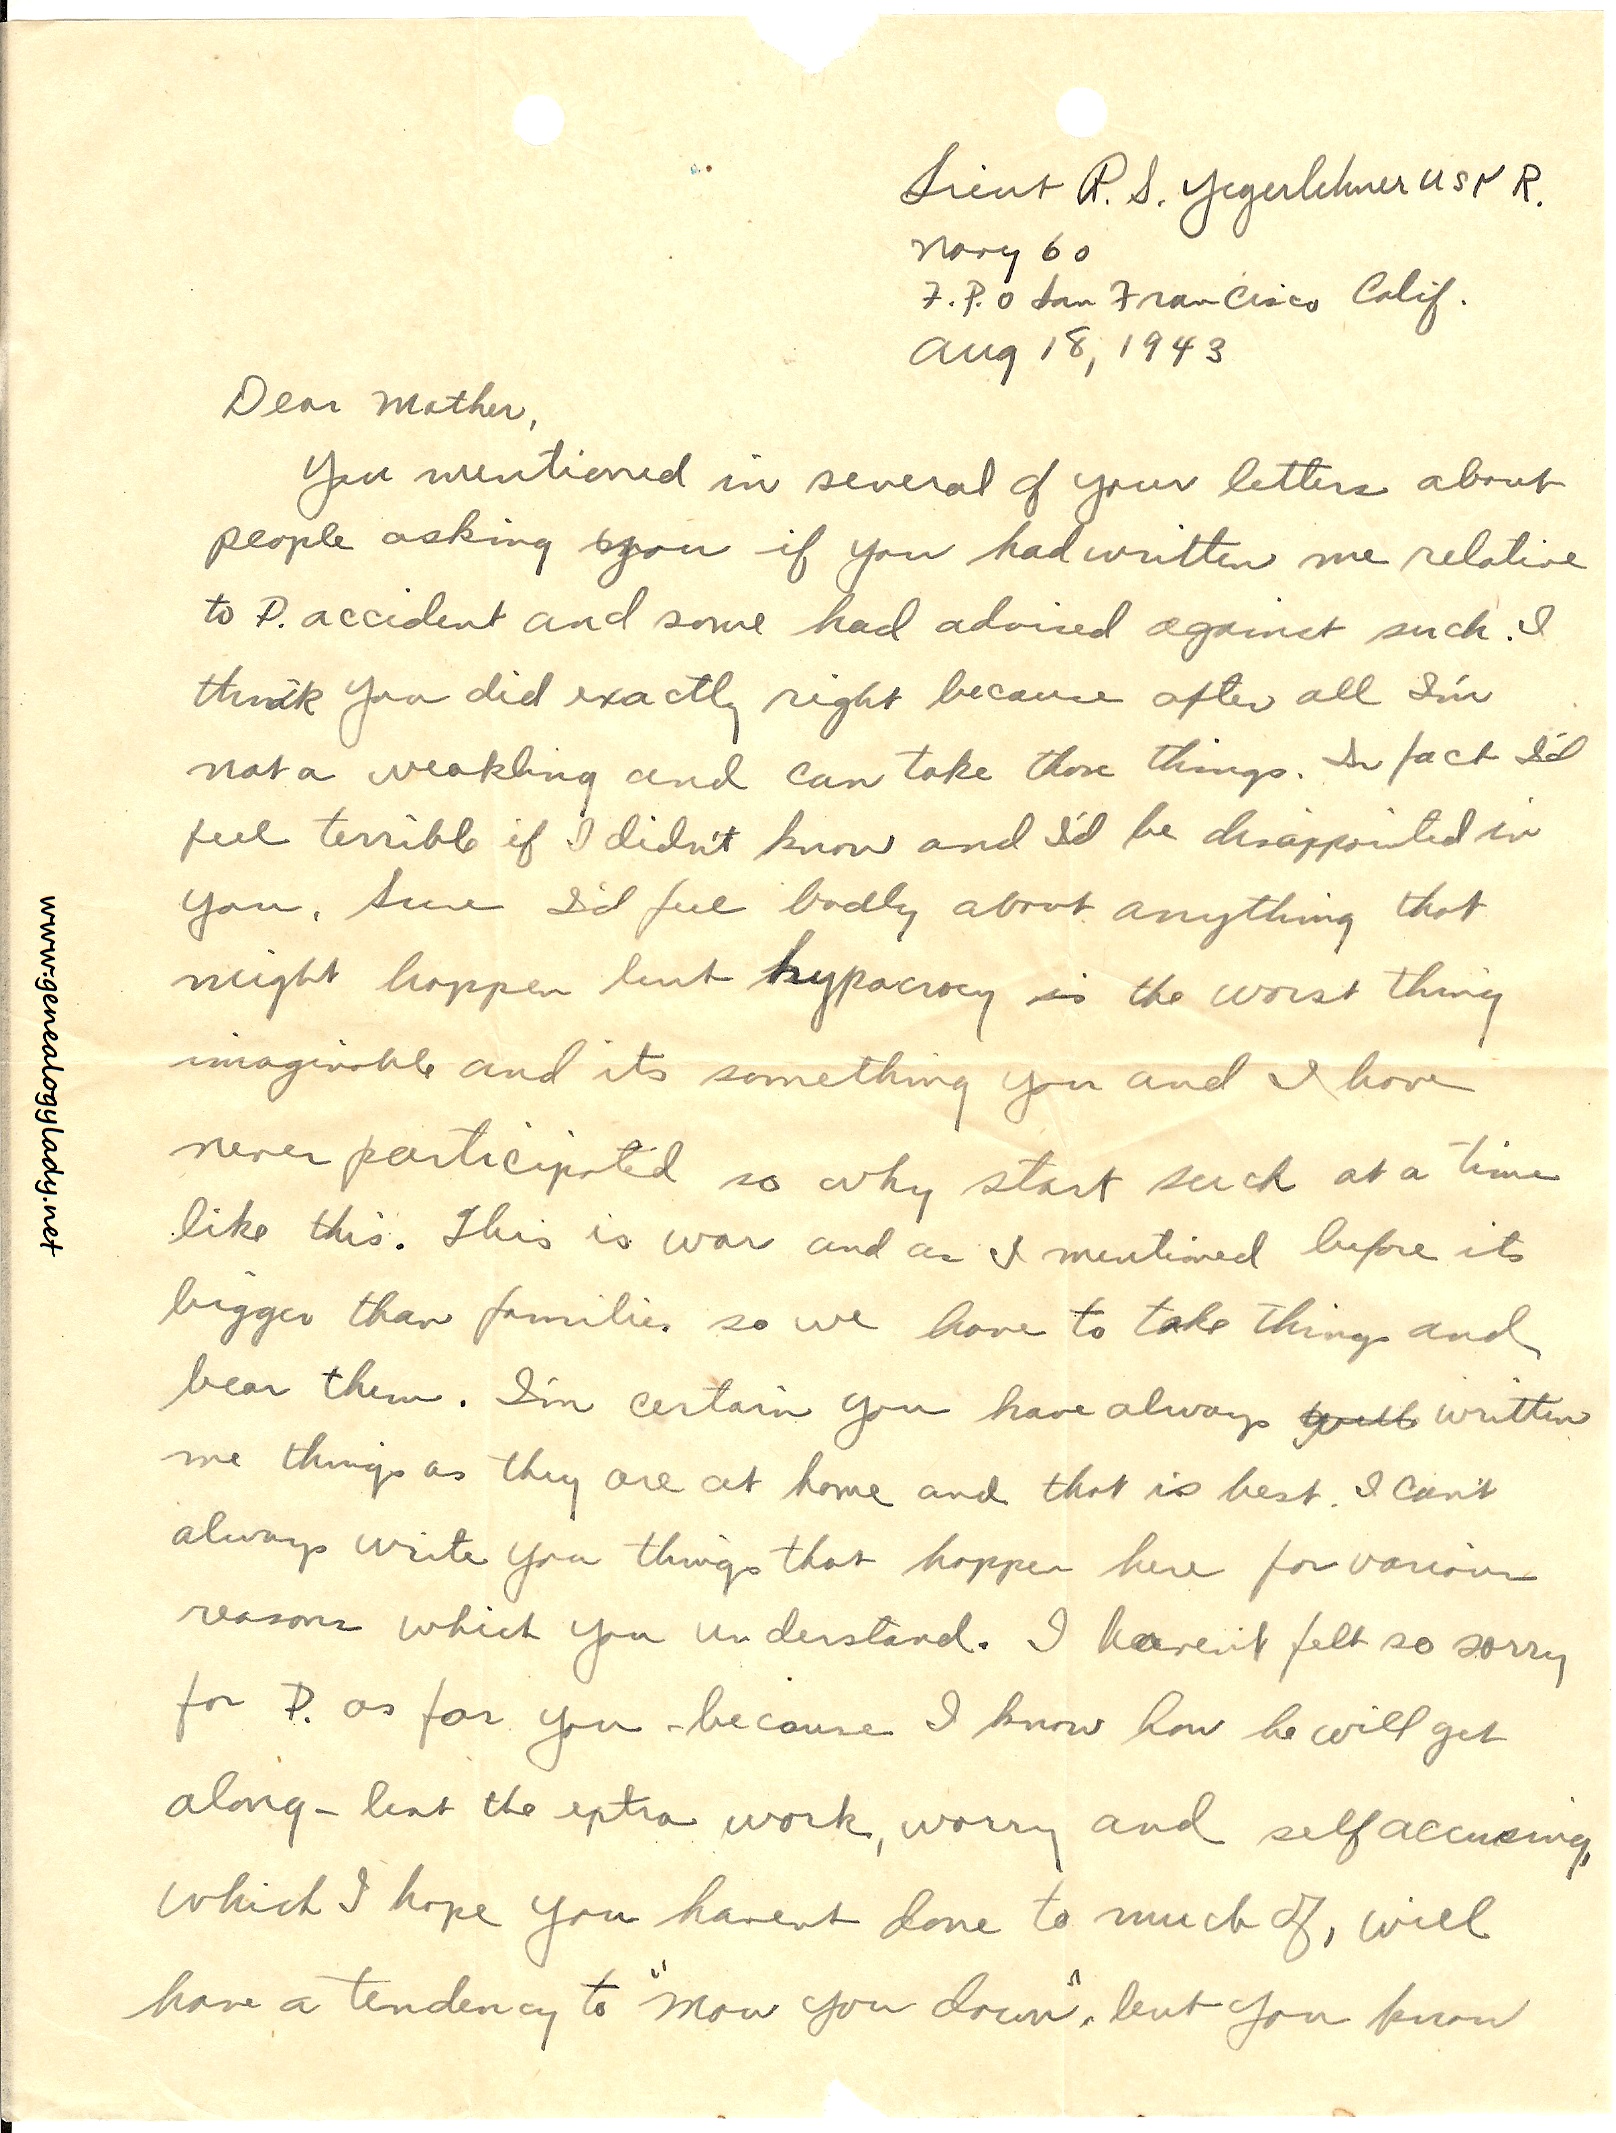 Lieut R. S. Yegerlehner USNR.
Navy 60
F.P.O San Francisco Calif.
Aug 18, 1943
Dear Mother,
You mentioned in several of your letters about
people asking you if you had written me relative
to P. accident and some had advised against such. I
think you did exactly right because after all I'm
not a weakling and can take those things. In fact I'd
feel terrible if I didn't know and I'd be disappointed in
you. Sure I'd feel badly about anything that
might happen but hypocracy is the worst thing
imaginable and its something you and I have
never participated so why start such at a time
like this. This is war and as I mentioned before its
bigger than families so we have to take things and
bear them. I'm certain you have always written
me things as they are at home and that is best. I can't
always write you things that happen here for various
reasons which you understand. I haven't felt so sorry
for P. as for you - because I know how he will get
along - but the extra work, worry and self accusing,
which I hope you havent done to much of, will
have a tendency to "mow you down". but you know
www.genealogylady.net